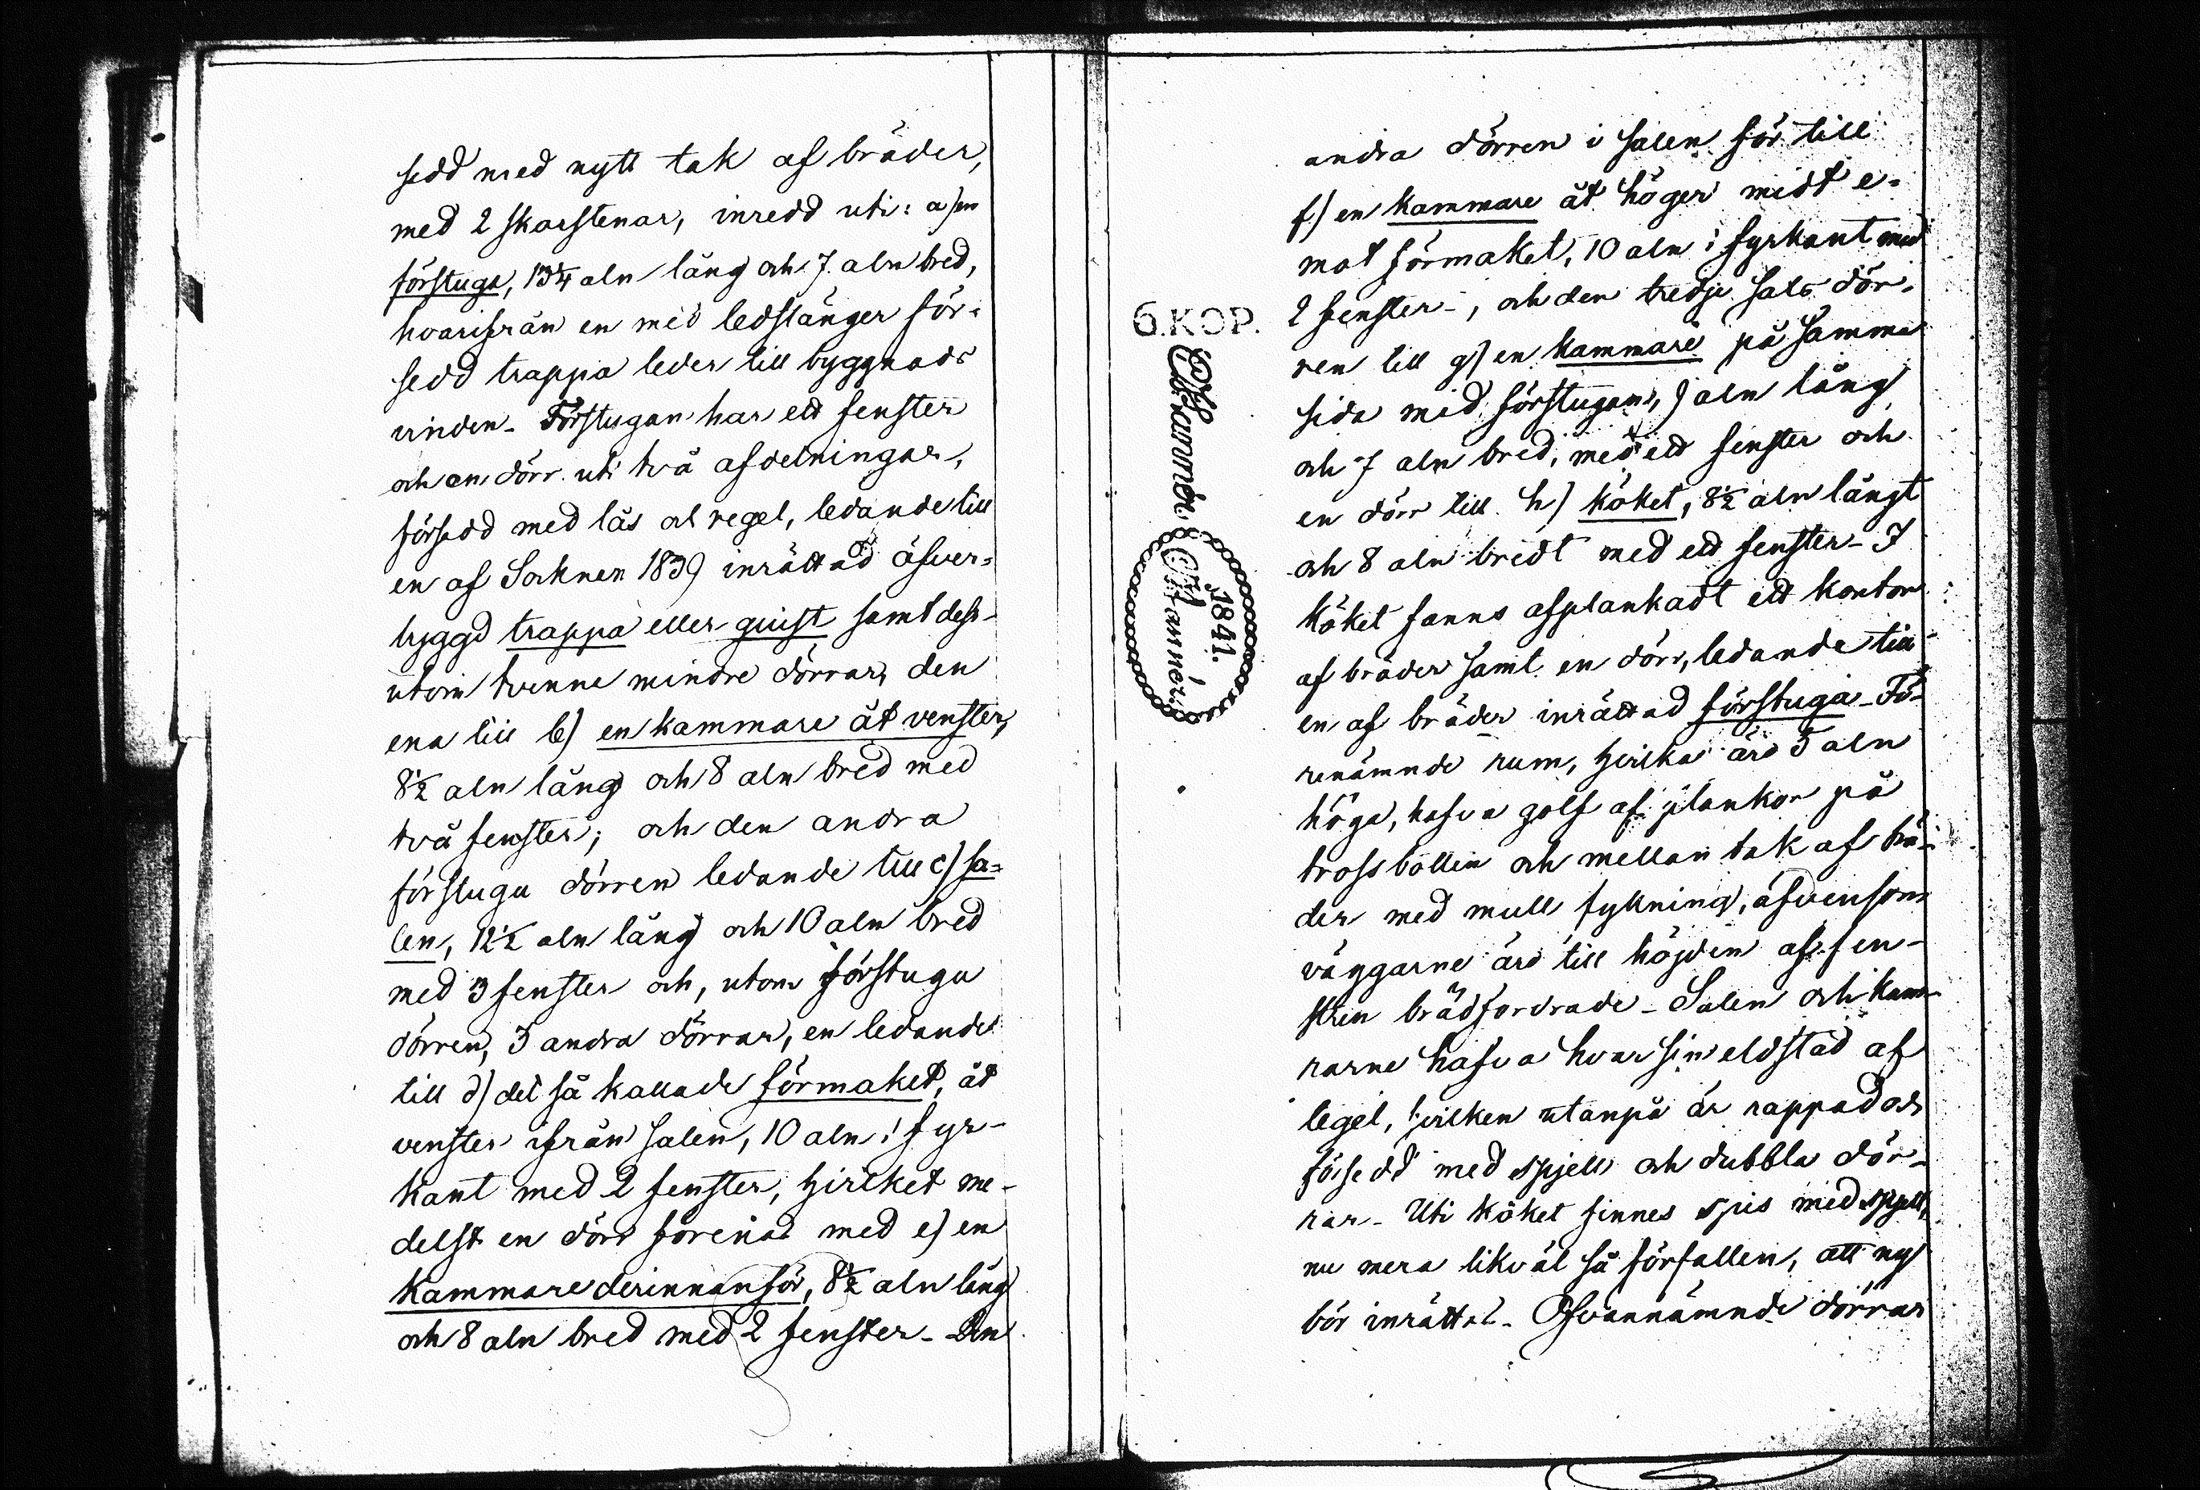 sedd med nytt tak af bräder,
med 2 skorstenar, inredd uti: a) en
förstuga, 13¼ aln lång och 7 aln bred,
hvarifrån en med ledstänger för-
sedd trappa leder till byggnads
vinden - Förstugan har ett fenster
och en dörr uti två afdelningar,
försedd med lås och regel, ledande till
en af Socknen 1839 inrättad öfver-
byggd trappa eller quist, samt dess-
utom tvenne mindre dörrar, den
ena till b) en kammare åt venster,
8½ aln lång och 8 aln bred med
två fenster; och den andra
förstugu dörren ledande till c) sa-
len, 12½ aln lång och 10 aln bred
med 3 fenster och, utom förstugu
dörren, 3 andra dörrar, en ledande
till d) det så kallade förmaket, åt
venster ifrån salen, 10 aln i fyr-
kant med 2 fenster, hvilket me-
delst en dörr förenas med e) en
kammare derinnanför, 8½ aln lång
och 8 aln bred med 2 fenster - Den
andra dörren i salen för till
f) en kammare åt höger midt e-
mot förmaket, 10 aln i fyrkant med
2 fenster -, och den tredje sals dör-
ren till g) en kammare på samma
sida med förstugan, 9 aln lång
och 7 aln bred, med ett fenster och
en dörr till h) köket, 8½ aln långt
och 8 aln bredt med ett fenster - I
köket fanns afplankadt ett kontor
af bräder samt en dörr, ledande till
en af bräder inrättad förstuga - Fö-
renämnde rum, hvilka äro 5 aln
höga, hafva golf af plankor på
trossbotten och mellan tak af brä-
der med mull fyllning, äfvensom
väggarne äro till höjden af fen-
stren brädfordrade - Salen och kam-
rarne hafva hvar sin eldstad af
tegel, hvilken utanpå är rappad och
försedd med spjell och dubbla dör-
rar - Uti köket finnes spis med spjell,
nu mera likväl så förfallen, att ny
bör inrättas - Ofvannämnde dörrar
6.KOP.
1841.